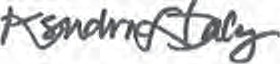 Kendra Staley